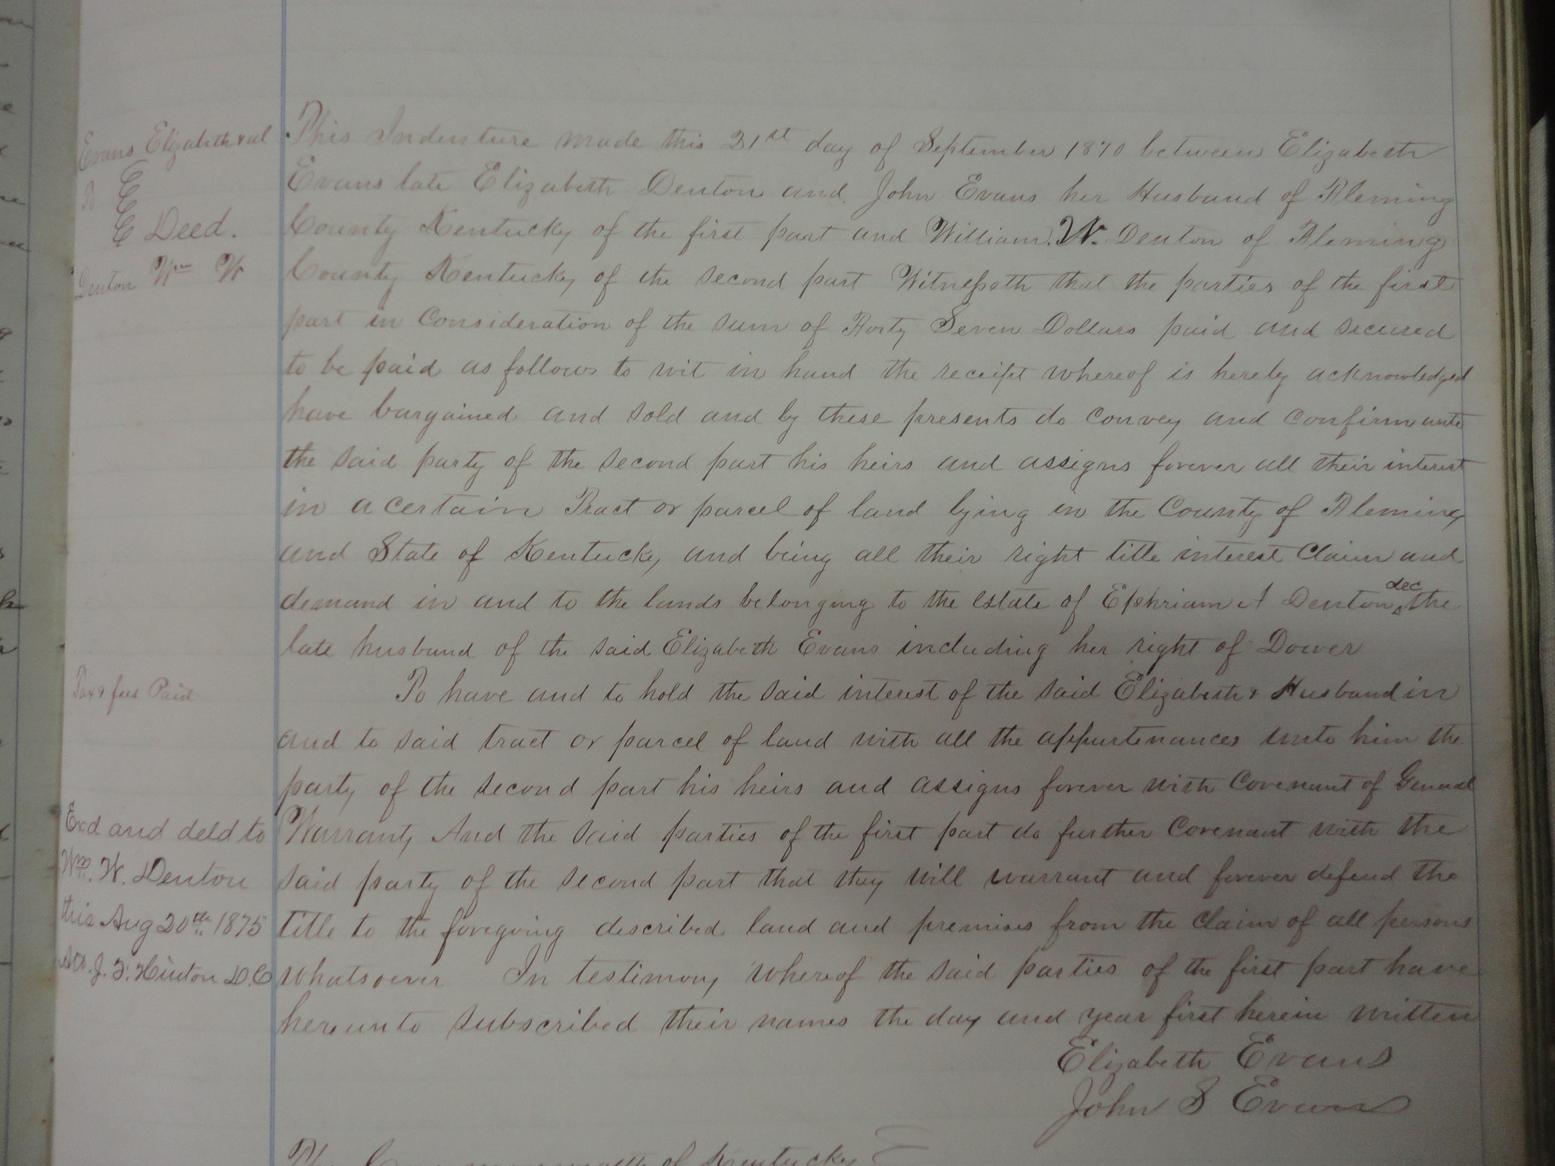 Evans Elizabeth & al
Deed.
Denton Wm W
This Indenture made this 21st day of September 1870 between Elizabeth
Evans late Elizabeth Denton and John Evans her Husband of Fleming
County Kentucky of the first part and William W. Denton of Fleming
County Kentucky of the second part Witnesseth that the parties of the first
part in Consideration of the sum of Forty Seven Dollars paid and secured
to be paid as follows to wit in hand the receipt whereof is hereby acknowledged
have bargained and sold and by these presents do convey and confirm unto
the said party of the second part his heirs and assigns forever all their interest
in a certain Tract or parcel of land lying in the County of Fleming
and State of Kentucky and being all their right title interest Claim and
demand in and to the lands belonging to the Estate of Ephriam A Denton dec the
late husband of the said Elizabeth Evans including her right of Dower
Tax & fees Paid
To have and to hold the said interest of the said Elizabeth & Husband in
and to said tract or parcel of land with all the appurtenances unto him the
party of the second part his heirs and assigns forever with Covenant of General
Warranty And the said parties of the first part do further Covenant with the
said party of the second part that they will warrant and forever defend the
title to the foregoing described land and premises from the claim of all persons
whatsoever In testimony whereof the said parties of the first part have
hereunto subscribed their names the day and year first herein written
Exd and deld to
Wm. W. Denton
this Aug 20th 1875
J. F. Hinton D.C
Elizabeth Evans
John S Evans
The Commonwealth of Kentucky